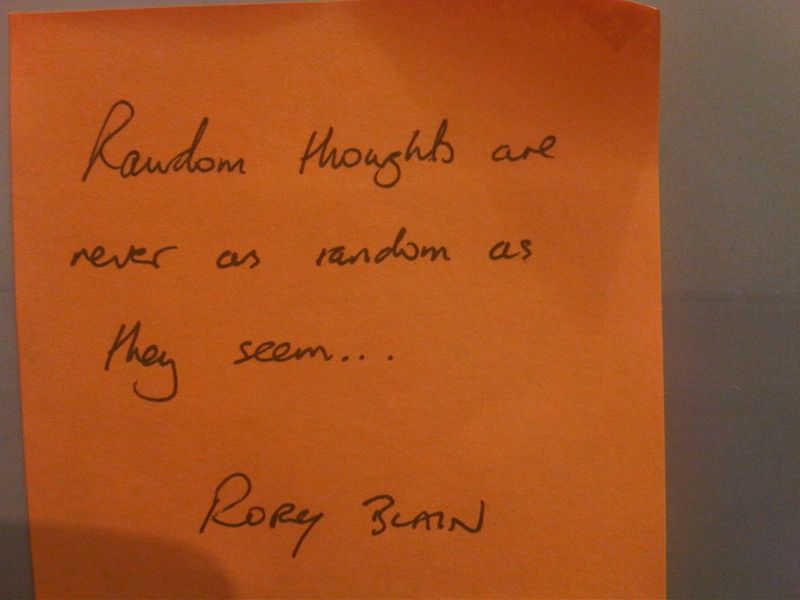 Random thoughts are
never as random as
they seem...
RORY BLAIN